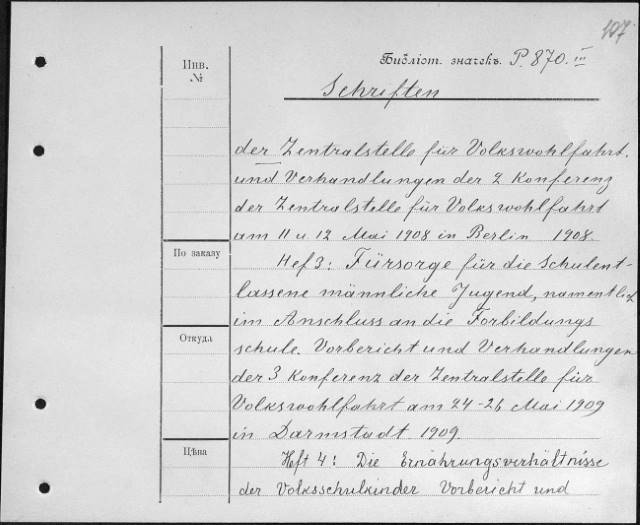 107
Инв. №
Библіот. значекъ. P. 870. III
Schriften
der Zentralstelle für Volkswohlfahrt.
und Verhandlungen der 2 Konferenz
der Zentralstelle für Volkswohlfahrt
am 11 u. 12 Mai 1908 in Berlin 1908.
По заказу
Hef 3: Fürsorge für die Schulent-
lassene männliche Jugend, namentlich
im Anschluss an die Forbildungs
Откуда
schule. Vorbericht und Verhandlungen
der 3 Konferenz der Zentralstelle für
Volkswohlfahrt am 24-26 Mai 1909
in Darmstadt 1909.
Цѣна
Heft 4: Die Ernährungsverhältnisse
der Volksschulkinder Vorbericht und